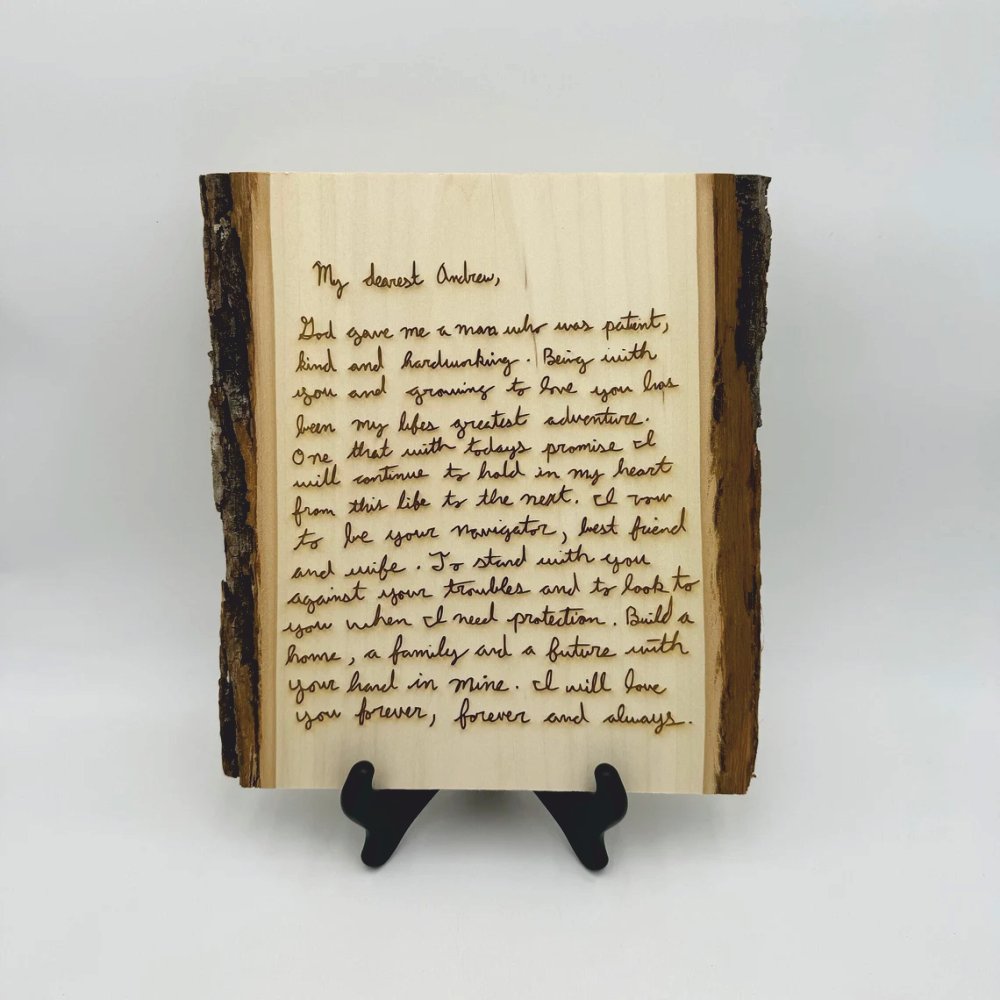 My dearest Andrew,
God gave me a man who was patient,
kind and hardworking. Being with
you and growing to love you has
been my lifes greatest adventure.
One that with todays promise I
will continue to hold in my heart
from this life to the next. I vow
to be your navigator, best friend
and wife. To stand with you
against your troubles and to look to
you when I need protection. Build a
home, a family and a future with
your hand in mine. I will love
you forever, forever and always.